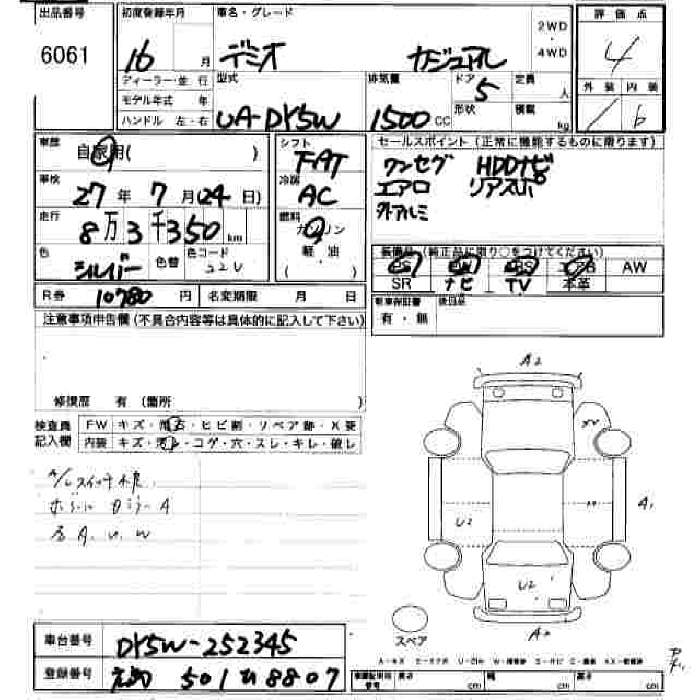 出品番号 初度登録年月 車名・グレード 2WD 評価点
6061 16 月 デミオ カジュアル ・ 4WD 4
ディーラー・並 行 型式 排気量 ドア 5 定員 人 外装 内装
モデル年式 年
ハンドル 左・右 UA-DY5W 1500 CC 形状 積載 kg 1 b
車歴 自家用( ) シフト FAT セールスポイント (正常に機能するものに限ります)
ワンセグ HDDナビ
車検 27 年 7 月(24 日) 冷房 AC エアロ リアスポ
外アルミ
走行 8 万 3 千 350 km 燃料 ガソリン
軽・油
( )
色 シルバー 色替 色コード 22V 装備品 (純正品に限り○をつけてください)
PS PW ABS エアB AW
SR ナビ TV 本革
R券 10780 円 名変期限 月 日 新車保証書 後日品
有・無
注意事項申告欄(不具合内容等は具体的に記入して下さい)
修復歴 有(箇所 )
検査員 FW キズ・飛石・ヒビ割・リペア跡・X要
記入欄 内装 キズ・汚レ・コゲ・穴・スレ・キレ・破レ
A2
A1
U2
U2
スペア
車台番号 DY5W-252345
登録番号 501 8807
cm cm cm